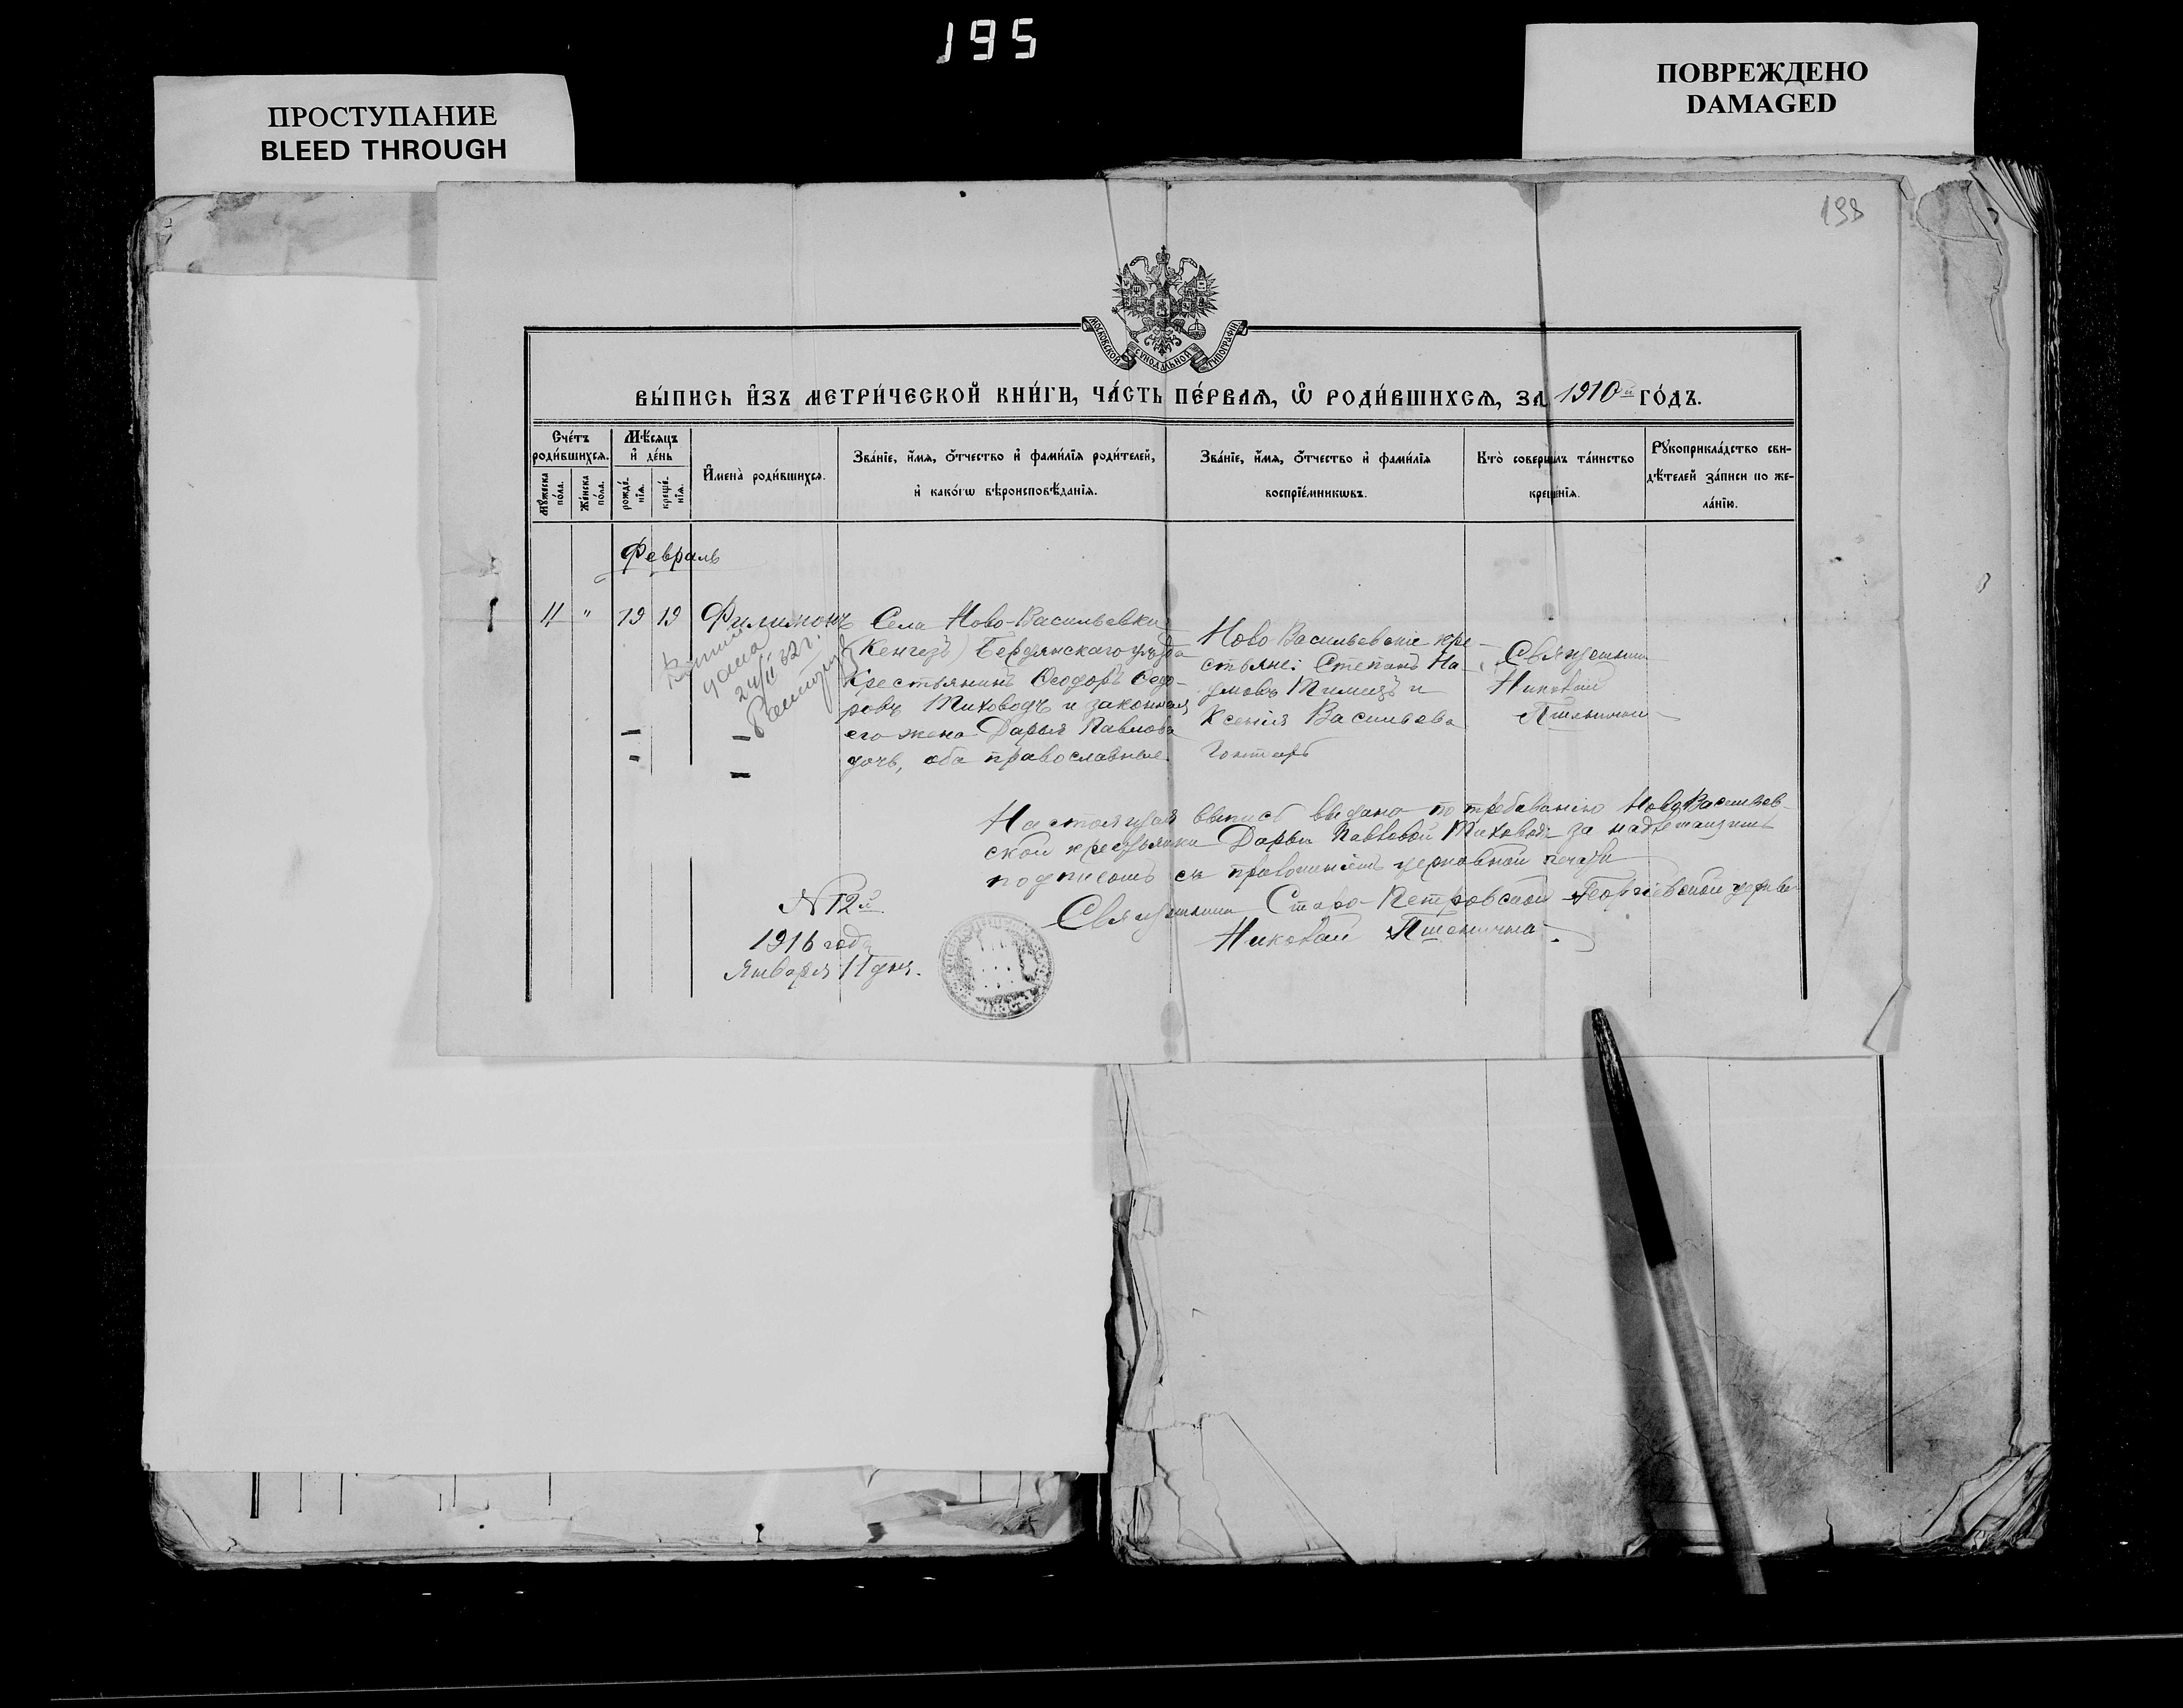 195
ПРОСТУПАНИЕ
BLEED THROUGH
ПОВРЕЖДЕНО
DAMAGED
198
МОСКОВСКОЙ СУНОДАЛЬНОЙ ТИПОГРАФІИ
ВЫ́ПИСЬ И҆ЗЪ МЕТРИ́ЧЕСКОЙ КНИ́ГИ, ЧА́СТЬ ПЕ́РВАѦ, Ѡ҆ РОДИ́ВШИХСѦ, ЗА 1910й ГО́ДЪ.
Сче́тъ роди́вшихсѧ.
Мꙋ́жеска по́ла.
Же́нска по́ла.
Мѣ́сѧцъ и҆ де́нь
рожде́нїѧ.
креще́нїѧ.
И҆мена̀ роди́вшихсѧ.
Зва́нїе, и҆́мѧ, ѻ҆́тчество и҆ фами́лїѧ роди́телей,
и҆ како́гѡ вѣроисповѣ́данїѧ.
Зва́нїе, и҆́мѧ, ѻ҆́тчество и҆ фами́лїѧ
воспрїе́мникѡвъ.
Кто̀ соверши́лъ та́инство
креще́нїѧ.
Рꙋкоприкла́дство сви-
дѣ́телей за́писи по же-
ла́нїю.
Февраль
4 " 19 19 Филимонъ
24/II 32 г.
Села Ново-Васильевки
(Кенгезъ) Бердянскаго уѣзда
крестьянинъ Ѳеодоръ Ѳедо-
ровъ Тиховодъ и законная
его жена Дарья Павлова
дочь, оба православные.
Ново Васильевскіе кре-
стьяне: Степанъ На-
умовъ и
Ксенія Васильева
Гонтарь
Священникъ
Николай
Пшеничный
Настоящая выпись выдана по требованію Ново Васильев-
ской крестьянки Дарьи Павловой Тиховодъ за надлежащимъ
подписомъ съ приложеніемъ церковной печати
Священникъ Старо-Петровской Георгіевской церкви
Николай Пшеничный.
N 12й
1916 года
Января 11 дня.